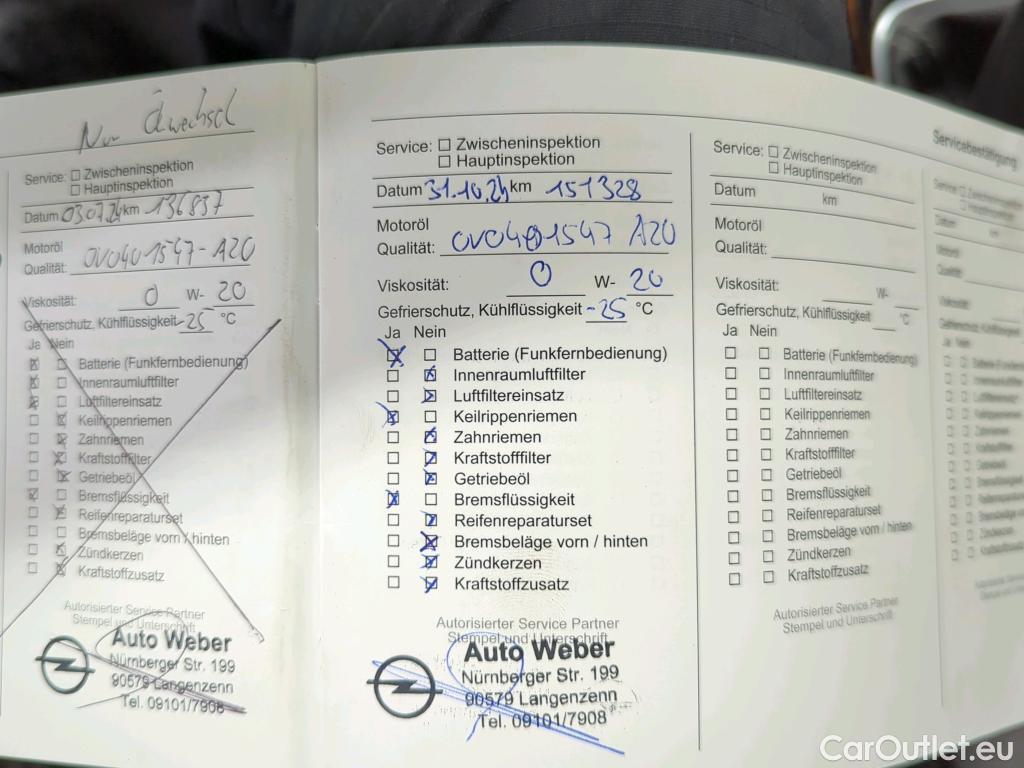 Nur Ölwechsel
Service: Zwischeninspektion
Hauptinspektion
Datum 03.07.24 km 136837
Motoröl
Qualität: OV0401547-A20
Viskosität: 0 W- 20
Gefrierschutz, Kühlflüssigkeit -25 °C
Ja Nein
Batterie (Funkfernbedienung)
Innenraumluftfilter
Luftfiltereinsatz
Keilrippenriemen
Zahnriemen
Kraftstofffilter
Getriebeöl
Bremsflüssigkeit
Reifenreparaturset
Bremsbeläge vorn / hinten
Zündkerzen
Kraftstoffzusatz
Autorisierter Service Partner
Stempel und Unterschrift
Auto Weber
Nürnberger Str. 199
90579 Langenzenn
Tel. 09101/7908
Service: Zwischeninspektion
Hauptinspektion
Datum 31.10.24 km 151328
Motoröl
Qualität: OV0401547 A20
Viskosität: 0 W- 20
Gefrierschutz, Kühlflüssigkeit -25 °C
Ja Nein
Batterie (Funkfernbedienung)
Innenraumluftfilter
Luftfiltereinsatz
Keilrippenriemen
Zahnriemen
Kraftstofffilter
Getriebeöl
Bremsflüssigkeit
Reifenreparaturset
Bremsbeläge vorn / hinten
Zündkerzen
Kraftstoffzusatz
Autorisierter Service Partner
Stempel und Unterschrift
Auto Weber
Nürnberger Str. 199
90579 Langenzenn
Tel. 09101/7908
Service: Zwischeninspektion
Hauptinspektion
Datum km
Motoröl
Qualität:
Viskosität: W-
Gefrierschutz, Kühlflüssigkeit °C
Ja Nein
Batterie (Funkfernbedienung)
Innenraumluftfilter
Luftfiltereinsatz
Keilrippenriemen
Zahnriemen
Kraftstofffilter
Getriebeöl
Bremsflüssigkeit
Reifenreparaturset
Bremsbeläge vorn / hinten
Zündkerzen
Kraftstoffzusatz
Autorisierter Service Partner
Stempel und Unterschrift
Servicebestätigung
CarOutlet.eu